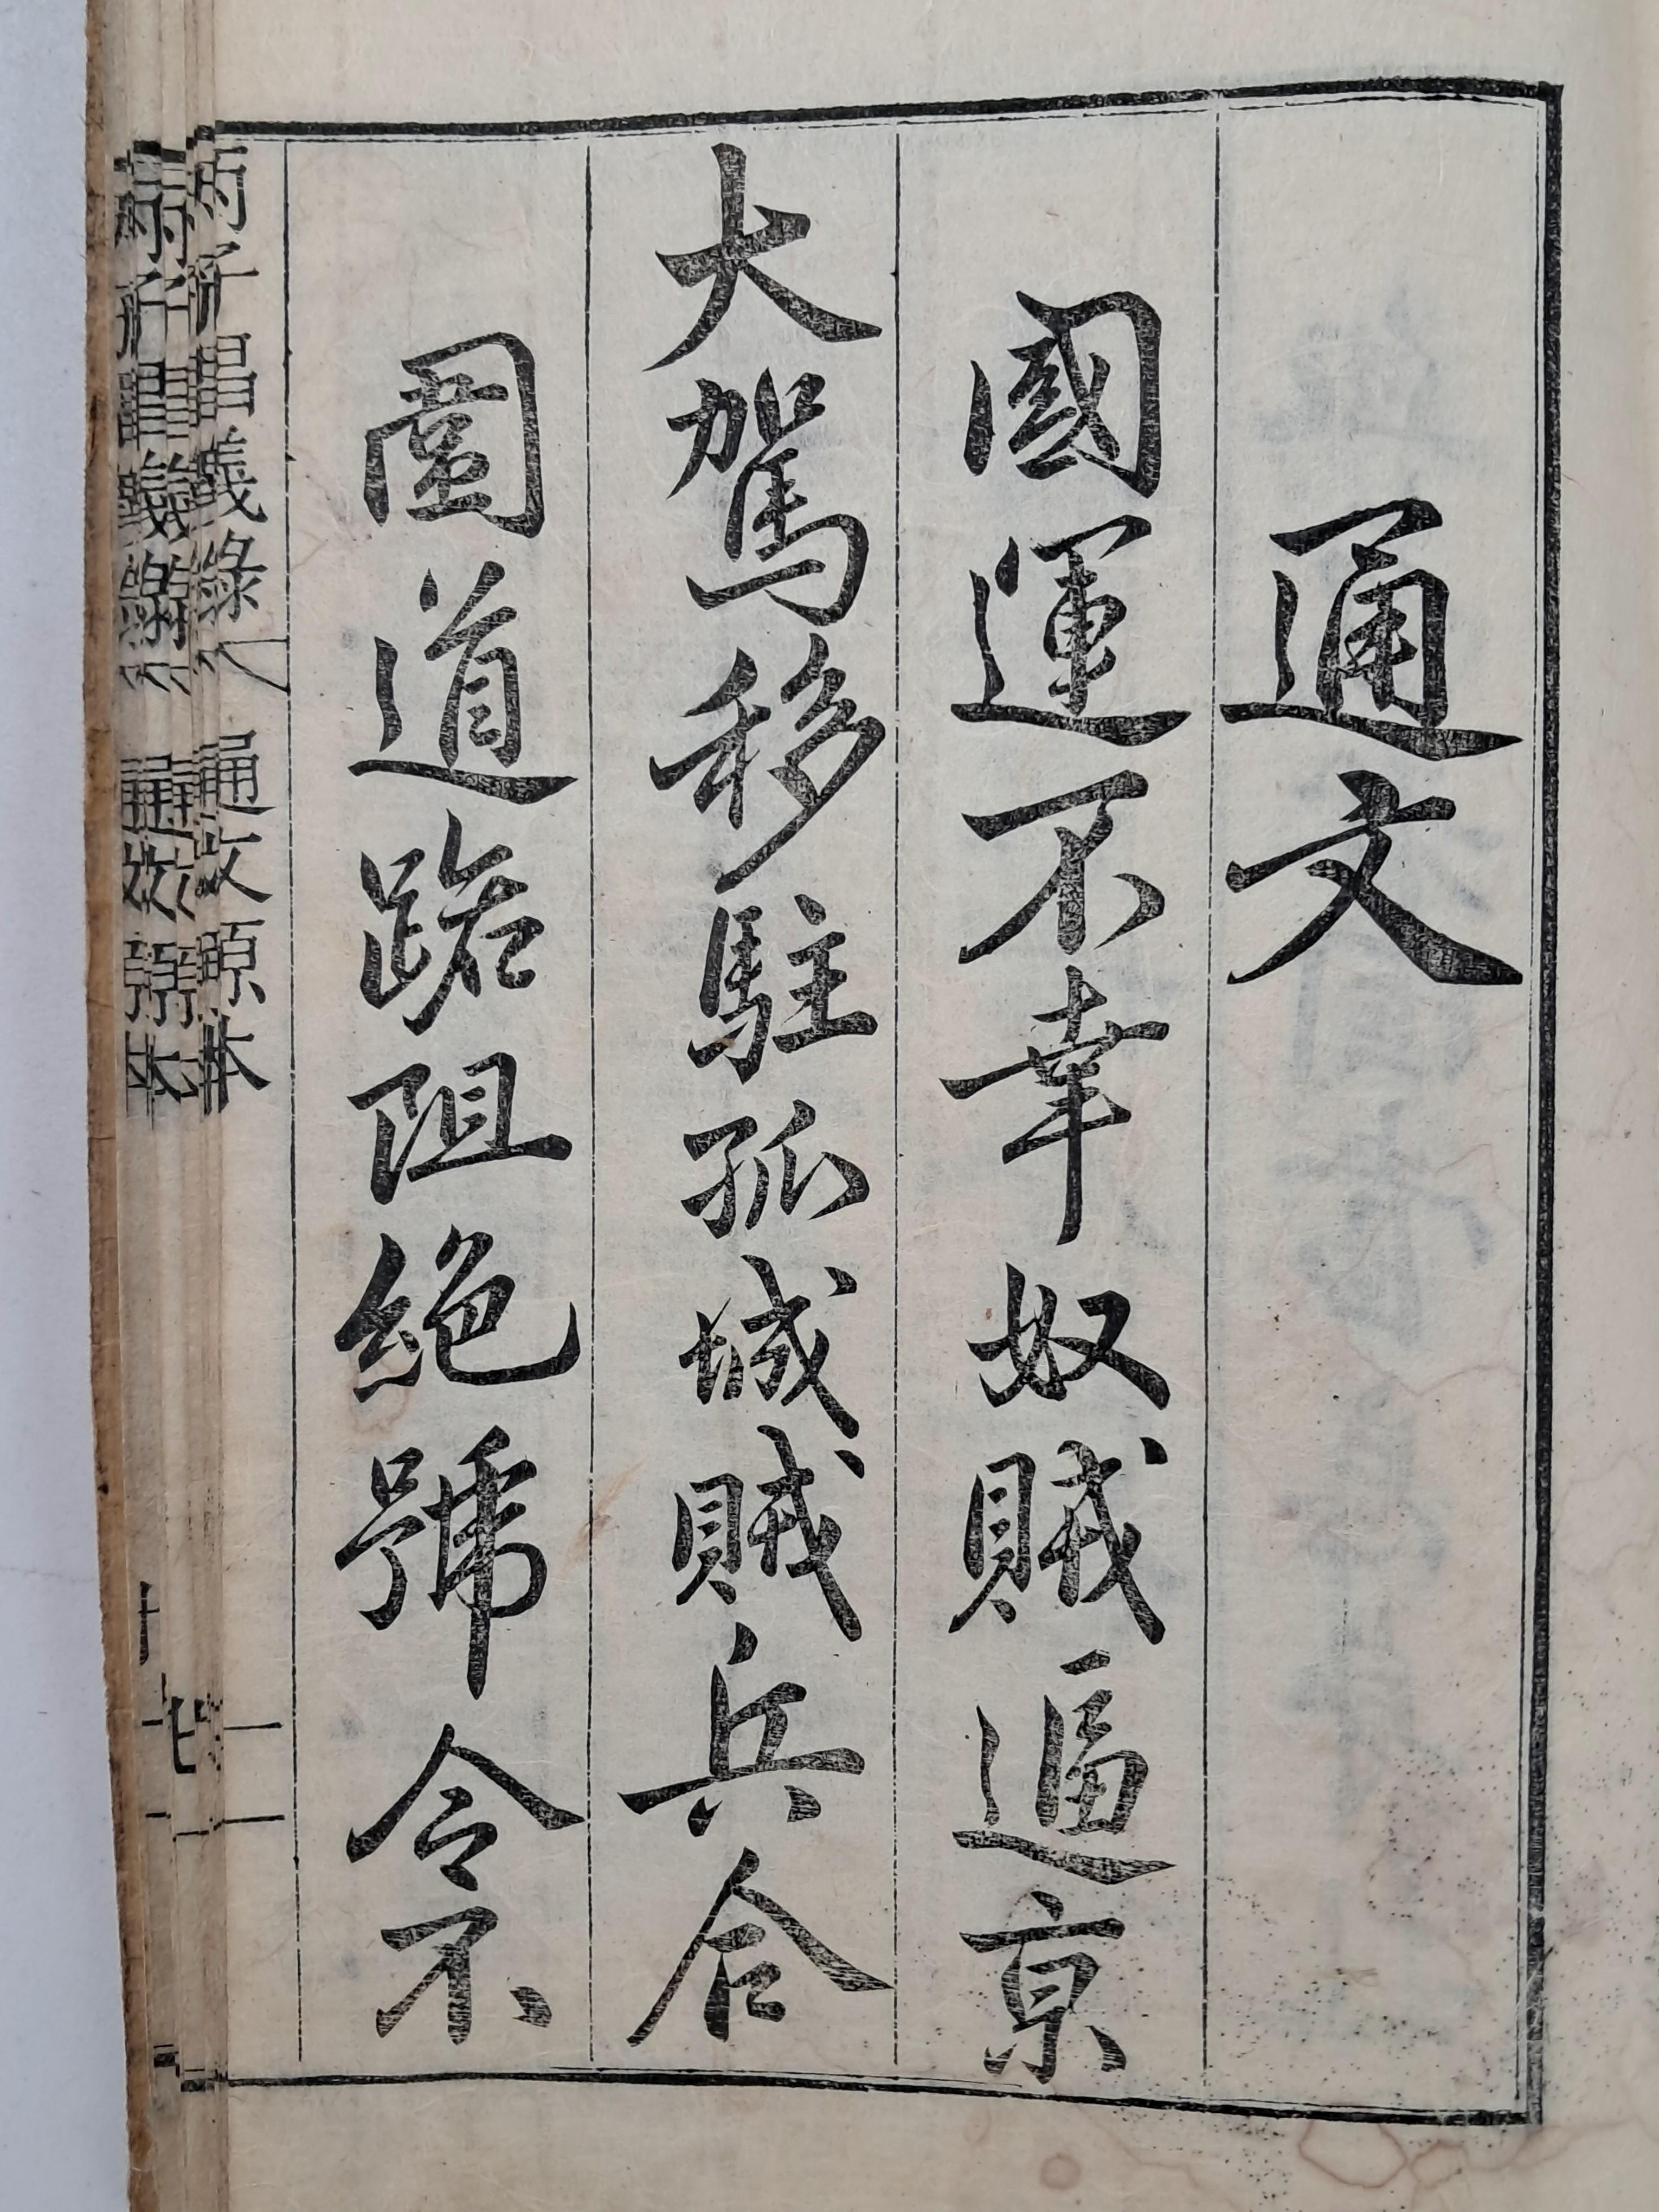 通文
國運不幸奴賊逼京
大駕移駐孤城賊兵合
圍道路阻絕號令不
丙子倡義錄 通文原本